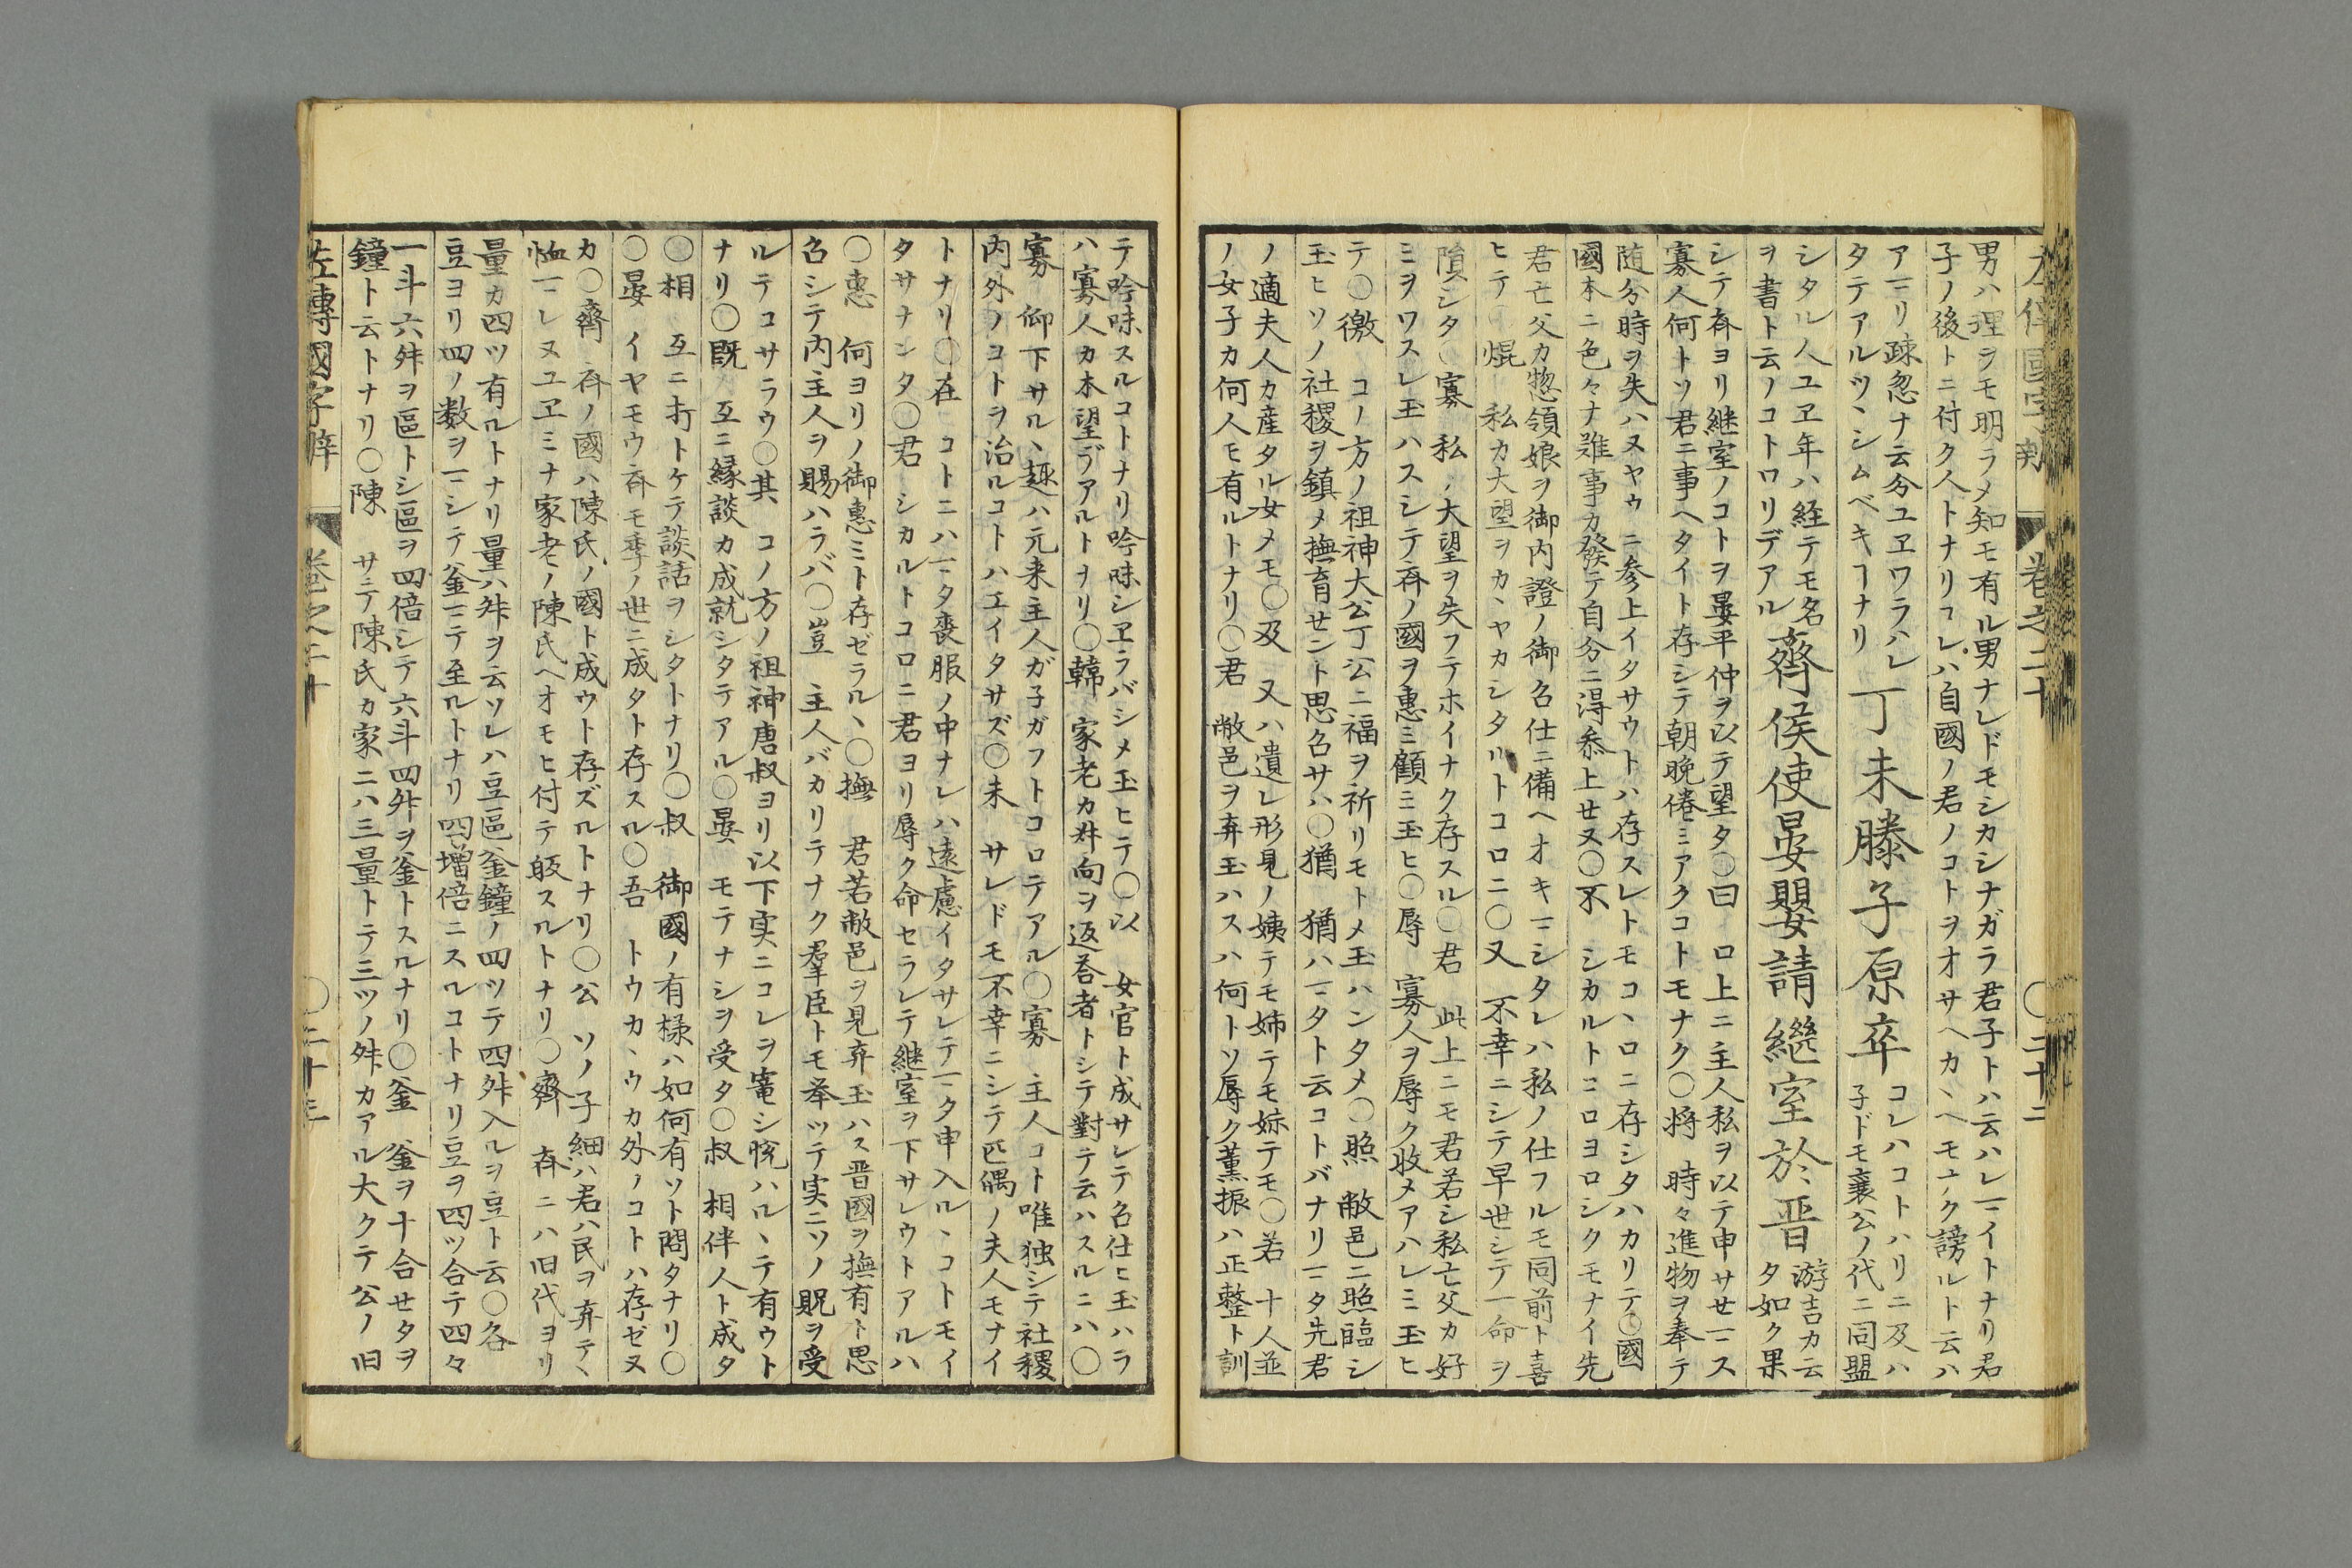 左傳國字辯 巻之二十 ○二十二
男ハ理ヲモ明ラメ知モ有ル男ナレドモシカシナガラ君子トハ云ハレマイトナリ君
子ノ後トニ付ク人トナリコレハ自國ノ君ノコトヲオサヘカヽヘモナク謗ルト云ハ
アマリ疎忽ナ云分ユヱワラハレ
タテアルツヽシムベキヿナリ
丁未滕子原卒
コレハコトハリニ及ハ
子ドモ襄公ノ代ニ同盟
シタル人ユヱ年ハ経テモ名
ヲ書ト云ノコトワリデアル
齊侯使晏嬰請繼室於晋
游吉カ云
タ如ク果
シテ斉ヨリ継室ノコトヲ晏平仲ヲ以テ望タ○曰 口上ニ主人私ヲ以テ申サセマス
寡人何トソ君ニ事ヘタイト存シテ朝晩倦ミアクコトモナク○将 時々進物ヲ奉テ
随分時ヲ失ハヌヤウニ参上イタサウトハ存スレトモコヽロニ存シタハカリテ○國
國本ニ色々ナ難事カ發テ自分ニ得参上セヌ○不 シカルトコロヨロシクモナイ先
君亡父カ惣領娘ヲ御内證ノ御召仕ニ備ヘオキマシタレハ私ノ仕フルモ同前ト喜
ヒテ○焜 私カ大望ヲカヽヤカシタルトコロニ○又 不幸ニシテ早世シテ一命ヲ
隕シタ○寡 私ノ大望ヲ失フテホイナク存スル○君 此上ニモ君若シ私亡父カ好
ミヲワスレ玉ハスシテ斉ノ國ヲ惠ミ顧ミ玉ヒ○辱 寡人ヲ辱ク收メアハレミ玉ヒ
テ○徼 コノ方ノ祖神大公丁公ニ福ヲ祈リモトメ玉ハンタメ○照 敝邑ニ照臨シ
玉ヒソノ社稷ヲ鎮メ撫育セント思召サハ○猶 猶ハマタト云コトバナリマタ先君
ノ適夫人カ産タル女メモ○及 又ハ遺レ形見ノ姨テモ姉テモ妹テモ○若 十人並
ノ女子カ何人モ有ルトナリ○君 敝邑ヲ弃玉ハスハ何トソ辱ク董振ハ正整ト訓
テ吟味スルコトナリ吟味シヱラバシメ玉ヒテ○以 女官ト成サレテ召仕ヒ玉ハラ
ハ寡人カ本望デアルトナリ○韓 家老カ弁向ヲ返荅者トシテ對テ云ハスルニハ○
寡 仰下サルヽ趣ハ元来主人ガ子ガフトコロテアル○寡 主人コト唯独シテ社稷
内外ノコトヲ治ルコトハエイタサズ○未 サレドモ不幸ニシテ匹偶ノ夫人モナイ
トナリ○在 コトニハマタ喪服ノ中ナレハ遠慮イタサレテマタ申入ルヽコトモイ
タサナンタ○君 シカルトコロニ君ヨリ辱ク命セラレテ継室ヲ下サレウトアルハ
○惠 何ヨリノ御惠ミト存ゼラルヽ○撫 君若敝邑ヲ見弃玉ハス晋國ヲ撫有ト思
召シテ内主人ヲ賜ハラバ○豈 主人バカリテナク羣臣トモ奉ツテ実ニソノ貺ヲ受
ルテコサラウ○其 コノ方ノ祖神唐叔ヨリ以下実ニコレヲ寵シ悦ハルヽテ有ウト
ナリ○既 互ニ縁談カ成就シタテアル○晏 モテナシヲ受タ○叔 相伴人ト成タ
○相 互ニ打トケテ談話ヲシタトナリ○叔 御國ノ有様ハ如何有ソト問タナリ○
○晏 イヤモウ斉モ季ノ世ニ成タト存スル○吾 トウカヽウカ外ノコトハ存ゼヌ
カ○齊 斉ノ國ハ陳氏ノ國ト成ウト存ズルトナリ○公 ソノ子細ハ君ハ民ヲ弃テヽ
恤マレヌユヱミナ家老ノ陳氏ヘオモヒ付テ皈スルトナリ○齊 斉ニハ旧代ヨリ
量カ四ツ有ルトナリ量ハ舛ヲ云ソレハ豆區釜鐘ノ四ツテ四舛入ルヲ豆ト云○各
豆ヨリ四ノ数ヲマシテ釜マテ至ルトナリ四増倍ニスルコトナリ豆ヲ四ツ合テ四々
一斗六舛ヲ區トシ區ヲ四倍シテ六斗四舛ヲ釜トスルナリ○釜 釜ヲ十合セタヲ
鐘ト云トナリ○陳 サテ陳氏カ家ニハ三量トテ三ツノ舛カアル大クテ公ノ旧
左傳國字辯 巻之二十 ○二十三